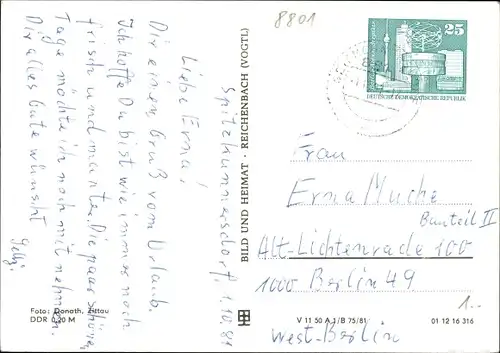 8801
25
DEUTSCHE DEMOKRATISCHE REPUBLIK
Spitzkunnersdorf, 1.10.81
Liebe Erna!
Dir einen Gruß vom Urlaub.
Ich hoffe Du bist wie immer noch
frisch und munter. Die paar schönen
Tage möchte ich noch mit nehmen.
Dir alles Gute wünscht
BILD UND HEIMAT · REICHENBACH (VOGTL)
Frau
Erna Muche
Bauteil II
Alt-Lichtenrade 100
1000 Berlin 49
West-Berlin
1..
Foto: Donath, Zittau
DDR 0,20 M
V 11 50 A 1/B 75/81
01 12 16 316